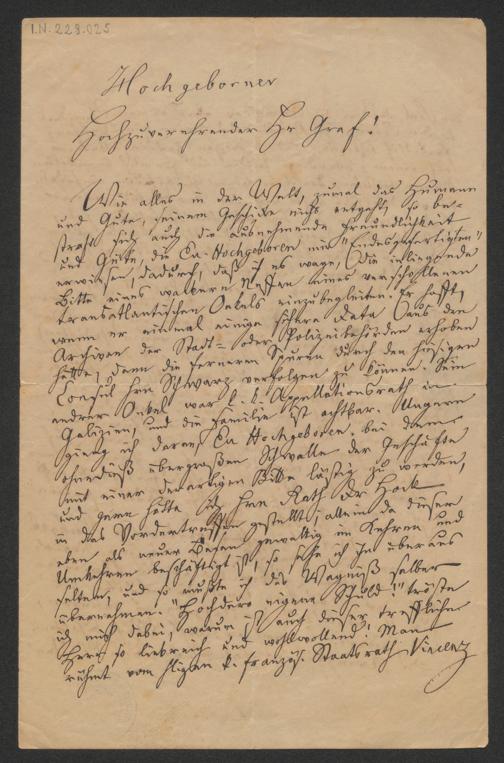 I.N. 228.025
Hochgeborner
Hochzuverehrender Hr Graf!
Wie alles in der Welt, zumal das Humane
und Gute, seinem Geschicke nicht entgeht, so be-
straft sich auch die ausnehmende Freundlichkeit
und Güte, die Eu. Hochgeboren mir "Endesgefertigten"
erwiesen, dadurch, daß ich es wage, die inliegende
Bitte eines wackern Neffen eines verschollenen
transatlantischen Onkels einzubegleiten. Er hofft,
wenn er einmal einige sichere Data aus den
Archiven der Stadt- oder Polizeibehörden erhoben
hätte, dann die ferneren Spuren durch den hiesigen
Consul Hrn Schwarz verfolgen zu können. Sein
andrer Onkel war k. k. Appellationsrath in
Galizien, und die Familie ist achtbar. Ungern
gieng ich daran, Eu Hochgeboren, bei dem
ohnedieß übergroßen Schwalle der Geschäfte
mit einer derartigen Bitte lästig zu werden,
und gern hätte ich Hrn Rath Dr Hock
in das Vordertreffen gestellt; allein da dieser
eben als neuer Besen gewaltig im Kehren und
Umkehren beschäftigt ist, so sehe ich ihn überaus
selten, und so mußte ich das Wagniß selber
übernehmen. "Hochdero eigene Schuld!" tröste
ich mich dabei, warum ist auch dieser treffliche
Herr so liebreich und wohlwollend! Man
rühmt vom k. französ. Staatsrath Vincenz